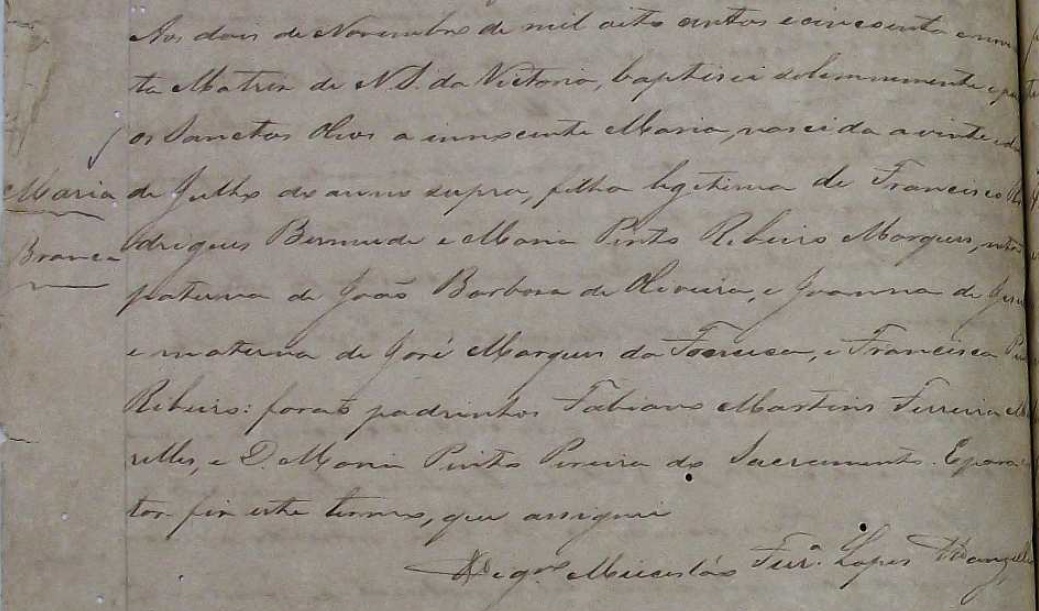 Aos dois de Novembro de mil oito centos e cincoenta e nov
ta Matriz de N S. da Victoria, baptisei solemnemente e
os Sanctos Oleos a innocente Maria, nascida a vinte e
Maria de Julho do anno supra, filha legitima de Francisco Ro
Branca drigues Bermude e Maria Pinto Ribeiro Marques, neta
paterna de João Barbosa de Oliveira, e Joanna de Jesu
e materna de José Marques da Fonseca, e Francisca Pin
Ribeiro: forão padrinhos Fabiano Martins Ferreira Me
relles, e D. Maria Pinto Pereira do Sacramento. E para
tar fiz este termo, que assignei
Mieceslão Ferrª. Lopes Wanzeller